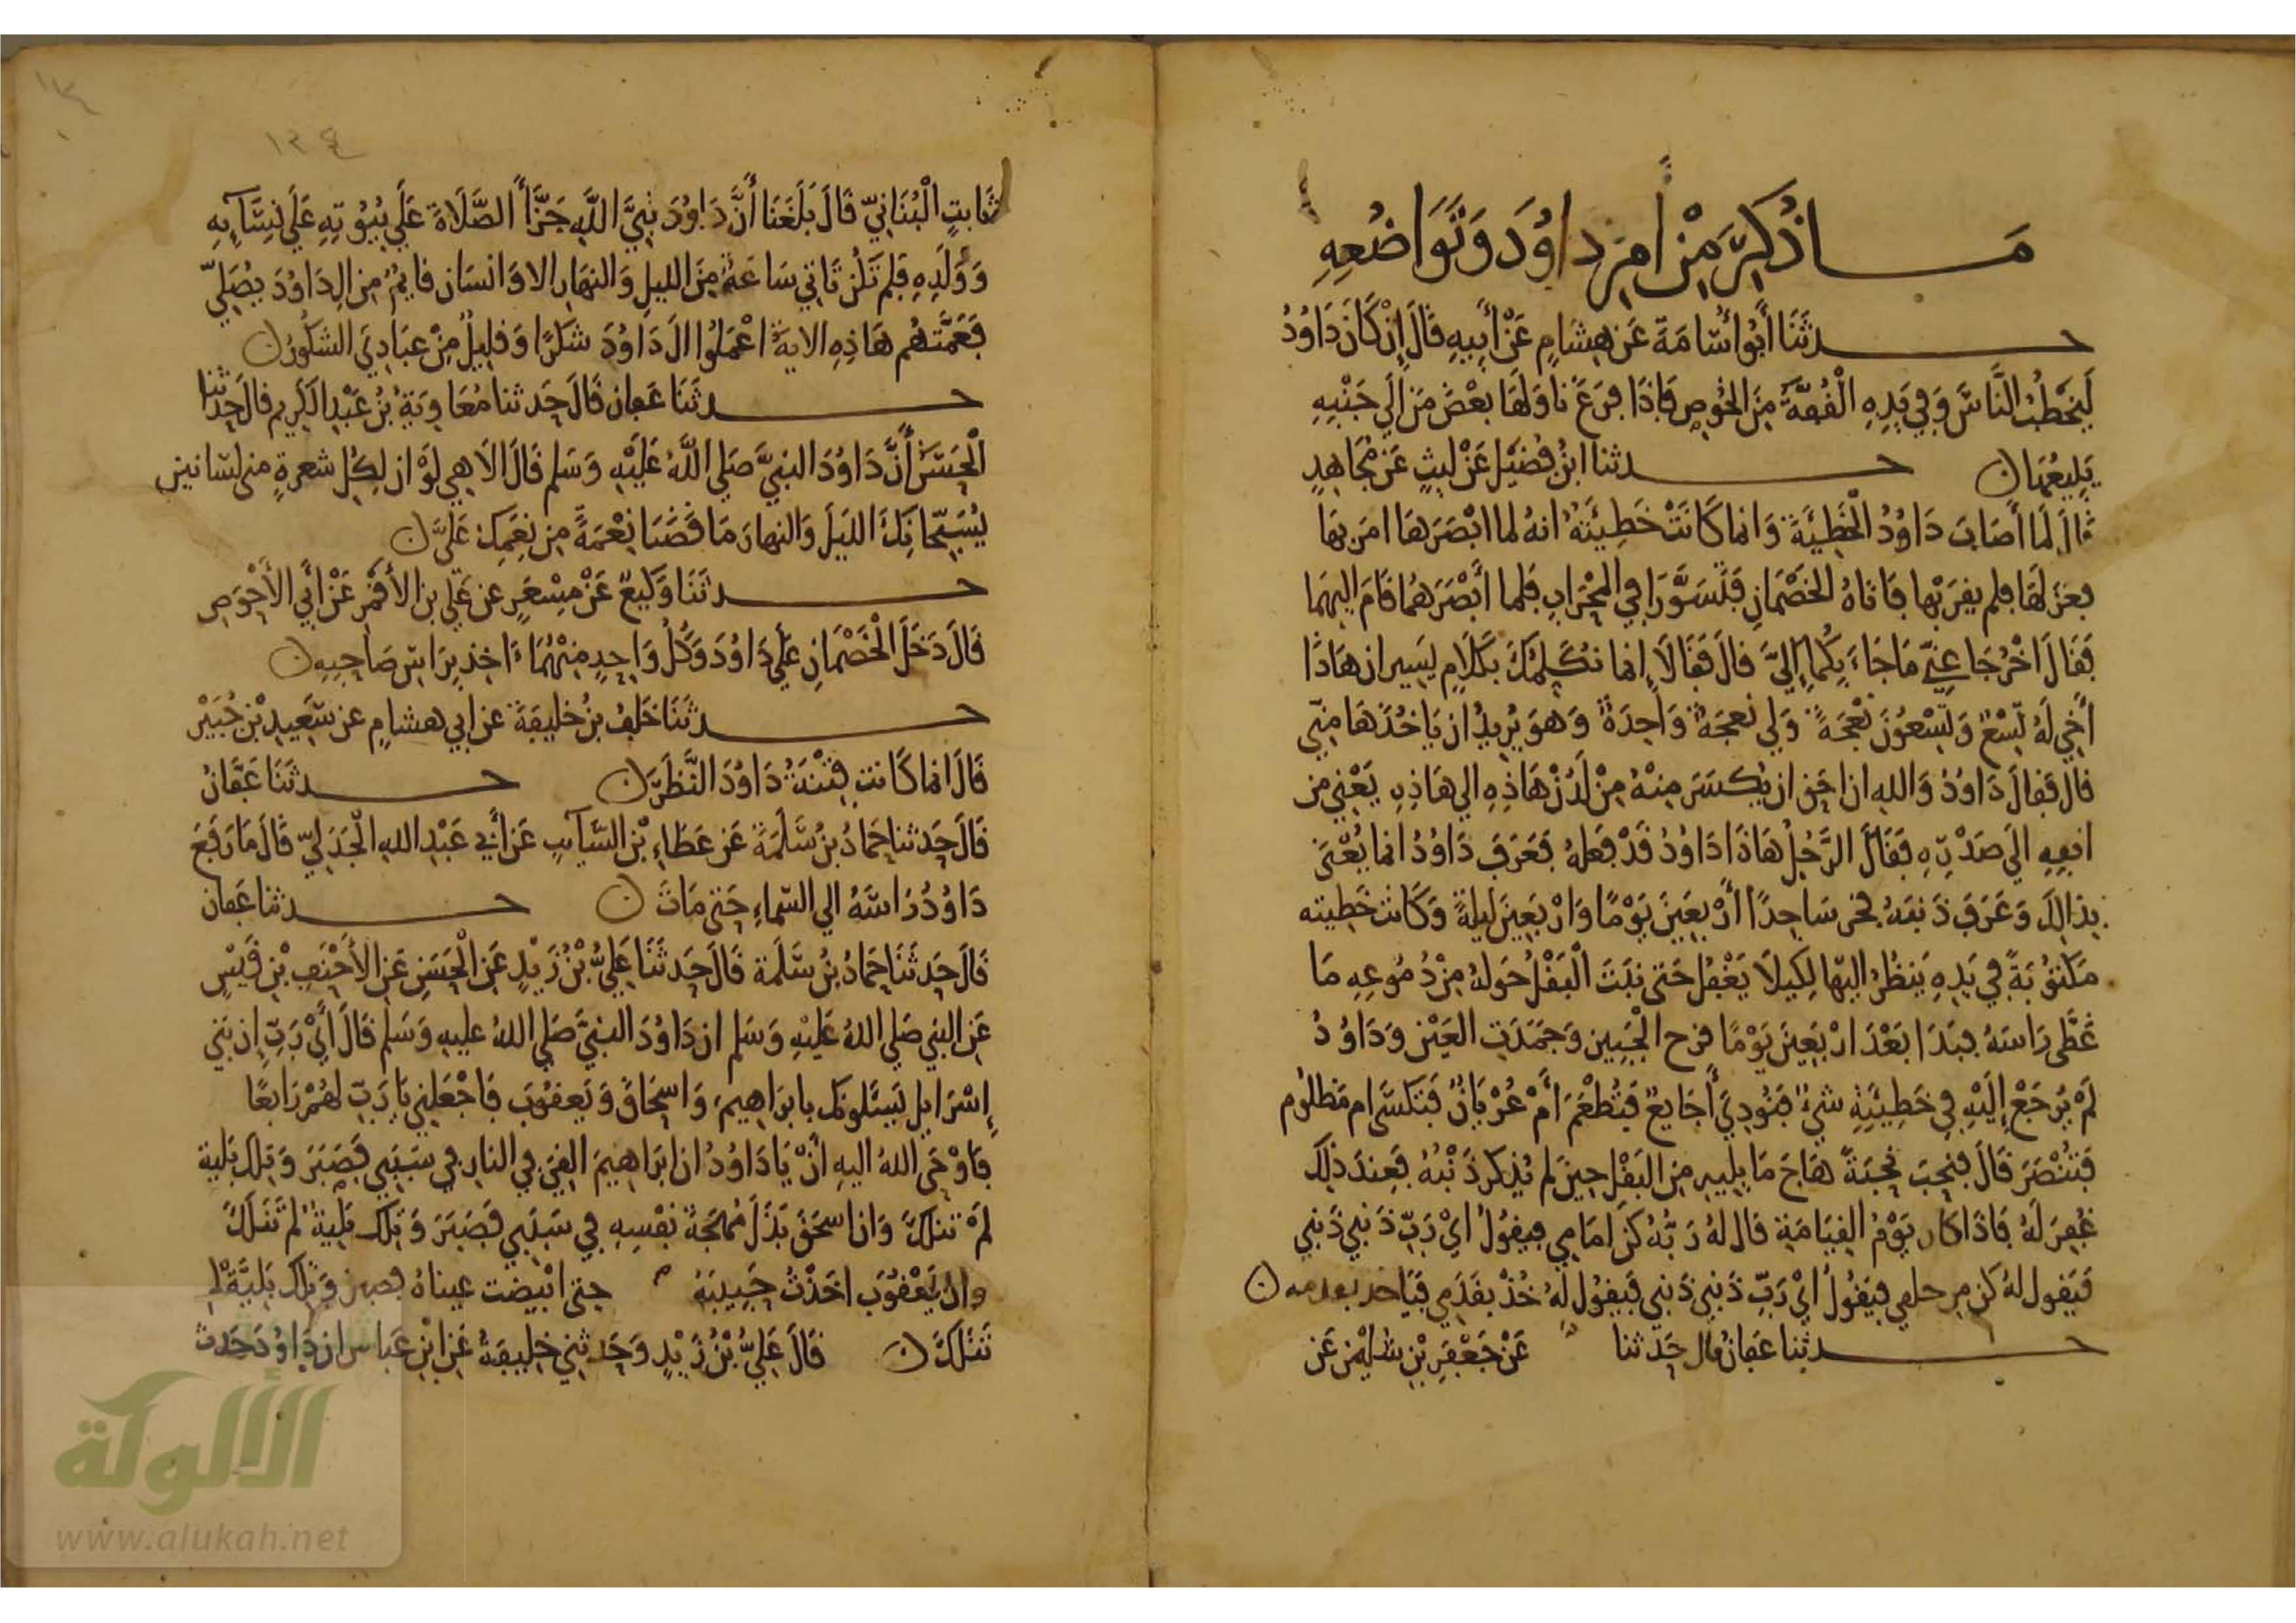 مَا ذُكِرَ مِنْ أَمرِ دَاوُدَ وَتَوَاضُعِهِ
حدثَنَا أَبُو أُسَامَةَ عَن هِشَامٍ عَنْ أَبِيهِ قَالَ إِنْ كَانَ دَاوُدُ
لَيَخطُبُ النَّاسَ وَفِي يَدِهِ الْقُفَّةُ مِنَ الخُوصِ فَاذَا فَرَغَ نَاوَلَهَا بَعْضَ مَن إِلَى جَنْبِهِ
يَبِيعُهَا
حدثنا ابنُ فُضَيْل عَنْ ليثٍ عَن مُجَاهِدٍ
قَالَ لَمَّا أَصَابَ دَاوُدُ الْخَطِيَّةَ وَانما كَانَتْ خَطِيئَتُهُ انهُ لما ابْصَرَهَا امَر بهَا
فعزلَهَا فلم يقرَبْها فَاتَاهُ الخَصْمَانِ فَتَسَوَّرَا فِي المِحْرَابِ فلما أَبْصَرَهُمَا قَامَ اليهِمَا
فَقَالَ اخْرُجَا عَنِّي مَا جَاءَ بِكُمَا إِلَيَّ قالَ فَقَالَا إِنما نُكَلِّمُكَ بِكَلَامٍ يَسِيرٍ ان هَاذَا
أَخِي لَهُ تِسْعٌ وَتِسْعُونَ نَعْجَةً وَلِي نَعجَةٌ وَاحِدَةٌ وَهوَ يُرِيدُ ان يَاخُذَهَا مِنِّي
قالَ فَقالَ دَاوُدُ وَاللهِ ان احَق ان يُكسَرَ مِنْهُ مِنْ لَدُنْ هَاذِهِ الي هَاذِهِ يَعْنِي من
انفِهِ الَى صَدْرِهِ فَقَالَ الرَّجُلُ هَاذَا دَاوُدُ قَدْ فَعلهُ فَعَرَفَ دَاوُدُ انما يُعْنَى
بِذالِكَ وَعَرَفَ ذَنبَهُ فخر سَاجِدًا أَرْبعِينَ يَوْمًا وَارْبَعِينَ لَيلةً وَكَانَت خَطِيته
مَكتُوبَةً فِي يَدِهِ يَنظُرُ اليْها لِكيلَا يَغْفُل حَتى نبَتَ الْبَقْلُ حَولهُ مِنْ دُمُوعِهِ مَا
غَطَّى رَاسَهُ فنَدَا بَعْدَ ارْبَعِينَ يَوْمًا قرح الْجَبِين وَجَمَدَتِ العَيْن وَدَاوُدُ
لَمْ يُرجَعْ إِلَيْهِ فِي خَطِيئَتِهِ شيءٌ فَنُودِيَ أَجَايِعٌ فَتُطْعَمَ أَمْ عُرْيَانٌ فَتُكسَى ام مَظلُوم
فَتُنْصَرَ قَالَ فنحِبَ نحْبَةً هَاجَ مَا يليهِ مِن البَقْلِ حِينَ لم يُذكر ذَنْبُهُ فَعِندَ ذلِكَ
غُفِرَ لَهُ فَاذَا كَان يَوْمُ القِيَامَةِ قَال لهُ رَبُّهُ كُن امَامِي فيقُولُ ايْ رَبِّ ذَنبِي ذَنبي
فَيَقول لهُ كن مِن خلفي فيَقُولُ ايْ رَبِّ ذَنبي ذَنبي فَيَقُول لهُ خُذْ بقَدَمِي فَيَاخذ بقدمه
حدثنا عَفانُ قال حَدثنا عَنْ جَعْفَرِ بْنِ سُليْمٰن عَن
١٣٤
ثَابتِ الْبُنَانِيِّ قَالَ بَلَغَنَا أَنَّ دَاوُدَ نَبِيَّ اللَّهِ جَزَّأَ الصَّلَاةَ عَلَى بُيُوتِهِ عَلَى نِسَآيِهِ
وَوَلَدِهِ فَلم تَكُن تَاتي سَاعَةٌ مِنَ الليلِ وَالنهَارِ الا وَانسَان قايمٌ مِن الِ دَاوُدَ يُصَلِّي
فَعَمَّتهُم هَاذِهِ الايةُ اعْمَلُوا الَ دَاوُدَ شُكرًا وَقلِيلٌ مِنْ عِبَادِيَ الشكُورُ
حدثَنَا عَفان قَالَ حَدثنا مُعَاوِيَةُ بْنُ عَبْدِ الكَرِيمِ قالَ حَدثنا
الْحَسَنُ أَنَّ دَاوُدَ النبيَّ صَلى اللَّهُ عَلَيْهِ وَسَلم قَالَ الَاهي لَوْ ان لِكُل شعرةٍ منى لسَانين
يُسَبِّحَانِكَ الليْلَ وَالنهارَ مَا قَضَيَا نِعْمَةً مِن نِعَمِكَ عَلَيَّ
حدثَنَا وَكِيعٌ عَنْ مِسْعَرٍ عن عَلي بن الأَقْمَرِ عَنْ أَبِي الأَحْوَصِ
قَالَ دَخَلَ الْخَصْمَانِ عَلَى دَاوُدَ وَكُلُّ وَاحِدٍ مِنْهُمَا ءَاخِذٍ بِرَاسِ صَاحِبِهِ
حدثَنَا خَلَفُ بنُ خلِيفَةَ عن ابي هشامٍ عن سَعِيدِ بْنِ جُبَيْرٍ
قَالَ انما كَانت فِتْنَةُ دَاوُدَ النَّظَرَ
حدثَنَا عَفَّانُ
قالَ حَدثنا حَمادُ بنُ سَلَمَةَ عَن عَطَاءِ بْنِ السَّآيبِ عَن أَبِي عَبْدِ اللهِ الْجَدَلِيِّ قَالَ مَا رَفَعَ
دَاوُدُ رَاسَهُ الى السَّماءِ حَتى مَاتَ
حدثنا عَفان
قَالَ حَدثَنَا حَمادُ بْنُ سَلَمَةَ قَالَ حَدثَنَا عَلِيُّ بْنُ زَيْدٍ عَنِ الْحَسَنِ عَنِ الأَحْنَفِ بْنِ قَيْسٍ
عَنِ النبي صَلى اللهُ عَليْهِ وَسَلم ان دَاوُدَ النبيَّ صَلى اللهُ عليهِ وَسَلم قَالَ أَيْ رَبِّ إِن بَنِي
إِسْرَايِل يَسْـَلُونَك بابرَاهِيمَ وَاسْحَاقَ وَيَعقُوبَ فَاجْعَلنِي يَا رَبِّ لهُمْ رَابعًا
فَاوْحَى اللهُ اليهِ أَنْ يَا دَاوُدُ ان ابرَاهِيمَ القِيَ في النارِ فِي سَبَبِي فَصَبَرَ وَتِلكَ بَلية
لَمْ تنلكَ وَان اسحَقَ بَذَلَ مُهجَةَ نفْسِهِ فِي سَبَبِي فَصَبَرَ وَتِلكَ بَليةٌ لم تَنَلكَ
وان يَعْقُوبَ اخَذْتُ حَبِيبَهُ حتى ابْيضت عيناهُ فصبر وَتِلكَ بَليَّةٌ لم
تَنَلكَ
قَالَ عَلِيُّ بْنُ زَيْدٍ وَحَدثني خليفَةُ عَن ابْنِ عَباسٍ ان دَاوُدَ حَدث
الألوكة
www.alukah.net